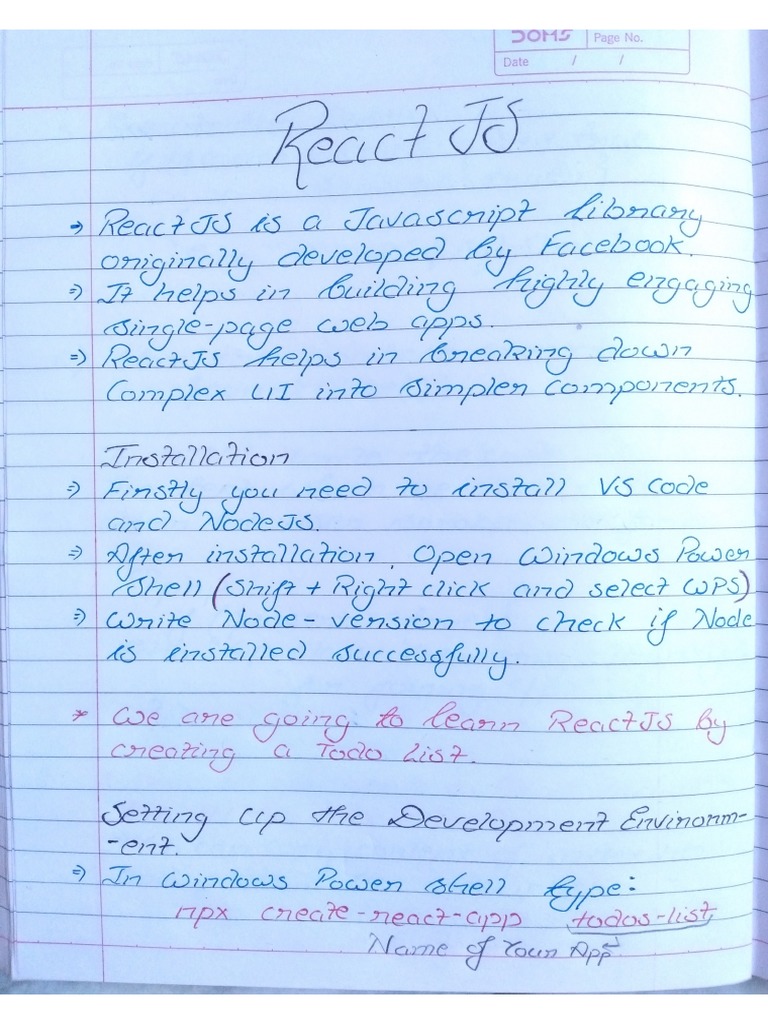 DOMS
Page No.
Date / /
React JS
→ ReactJS is a Javascript library
originally developed by Facebook.
⇒ It helps in building highly engaging
single-page web apps.
⇒ ReactJS helps in breaking down
Complex UI into simpler components.
Installation
⇒ Firstly you need to install VS Code
and NodeJS.
⇒ After installation, Open Windows Power
Shell (Shift + Right click and select WPS)
⇒ Write Node-version to check if Node
is installed successfully.
* We are going to learn ReactJS by
creating a Todo List.
Setting up the Development Environm-
-ent.
⇒ In Windows Power shell type:
npx create-react-app todos-list
Name of Your App